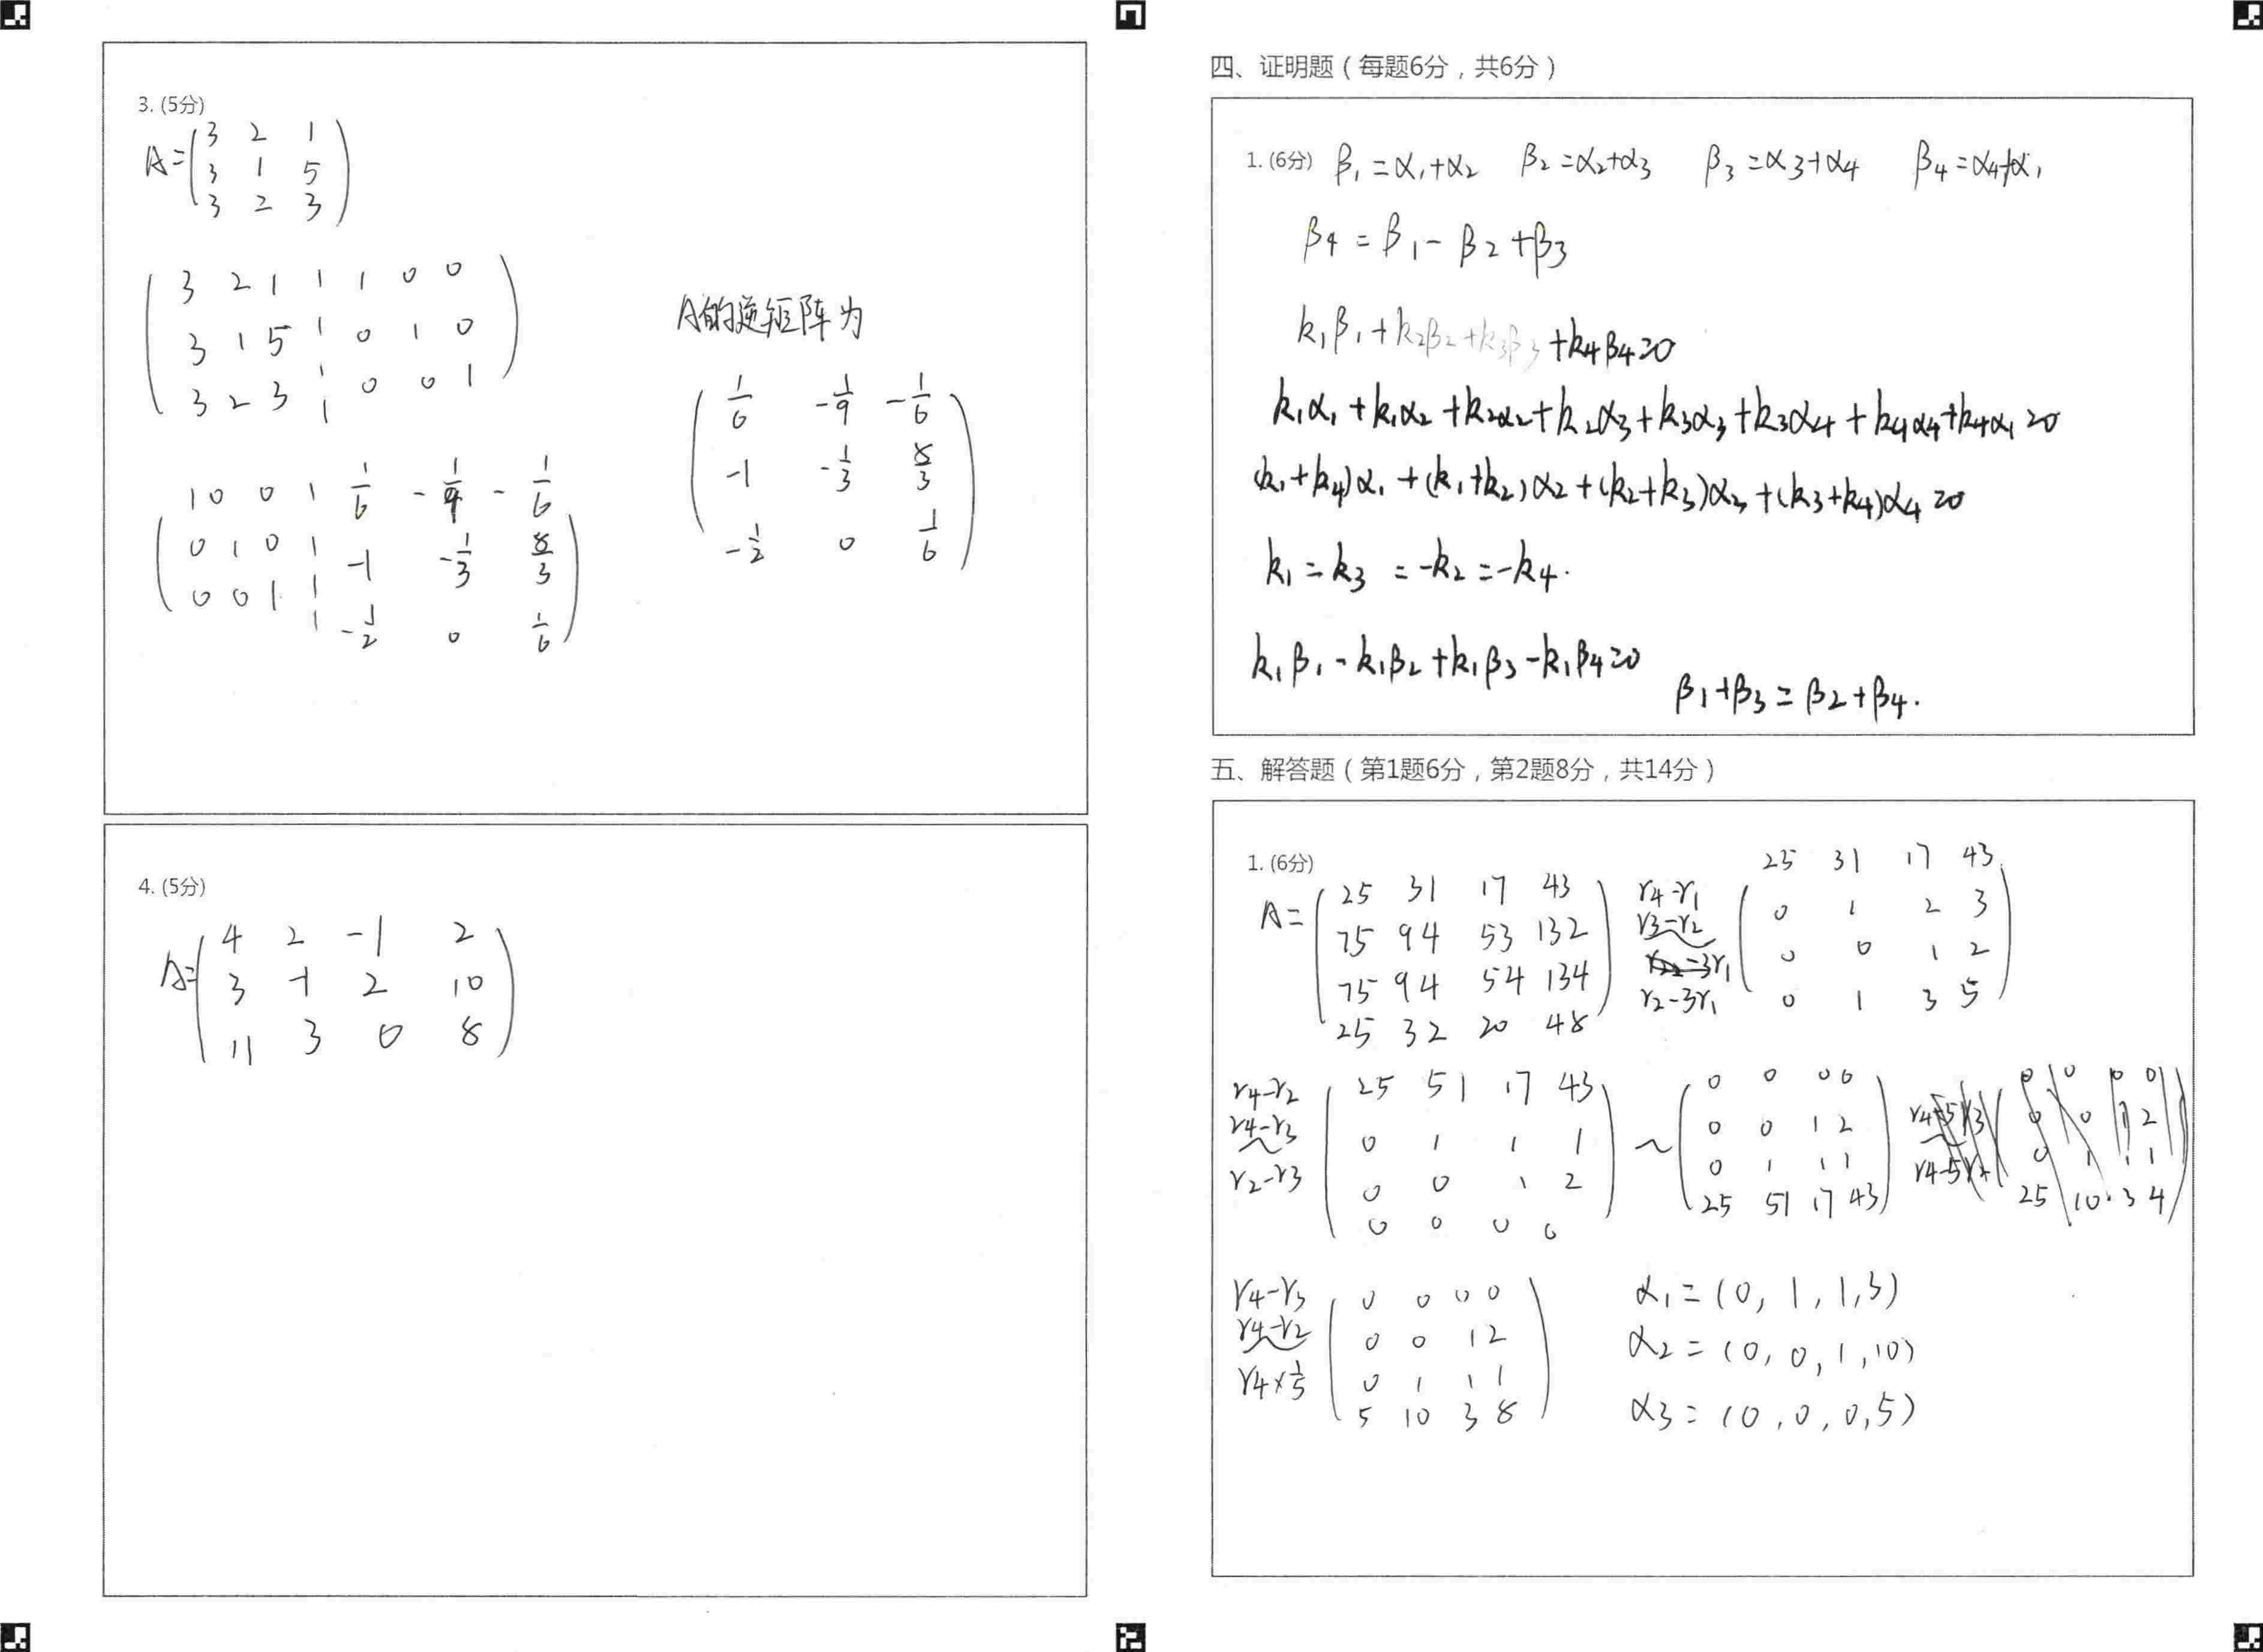 3. (5分)
A=(3 2 1
3 1 5
3 2 3)
(3 2 1 | 1 0 0
3 1 5 | 0 1 0
3 2 3 | 0 0 1)
A的逆矩阵为
(1/6 -1/9 -1/6
-1 -1/3 8/3
-1/2 0 1/6)
(1 0 0 | 1/6 -1/9 -1/6
0 1 0 | -1 -1/3 8/3
0 0 1 | -1/2 0 1/6)
4. (5分)
A=(4 2 -1 2
3 -1 2 10
11 3 0 8)
四、证明题(每题6分,共6分)
1. (6分) β1=α1+α2 β2=α2+α3 β3=α3+α4 β4=α4+α1
β4=β1-β2+β3
k1β1+k2β2+k3β3+k4β4=0
k1α1+k1α2+k2α2+k2α3+k3α3+k3α4+k4α4+k4α1=0
(k1+k4)α1+(k1+k2)α2+(k2+k3)α3+(k3+k4)α4=0
k1=k3=-k2=-k4.
k1β1-k1β2+k1β3-k1β4=0
β1+β3=β2+β4.
五、解答题(第1题6分,第2题8分,共14分)
1. (6分)
A=(25 31 17 43
75 94 53 132
75 94 54 134
25 32 20 48)
r4-r1
r3-r2
r2-3r1
(25 31 17 43
0 1 2 3
0 0 1 2
0 1 3 5)
r4-r2
r4-r3
r2-r3
(25 51 17 43
0 1 1 1
0 0 1 2
0 0 0 0)
~(0 0 0 0
0 0 1 2
0 1 1 1
25 51 17 43)
r4-r3
r4-r2
r4×1/5
(0 0 0 0
0 0 1 2
0 1 1 1
5 10 3 8)
α1=(0,1,1,3)
α2=(0,0,1,10)
α3=(0,0,0,5)